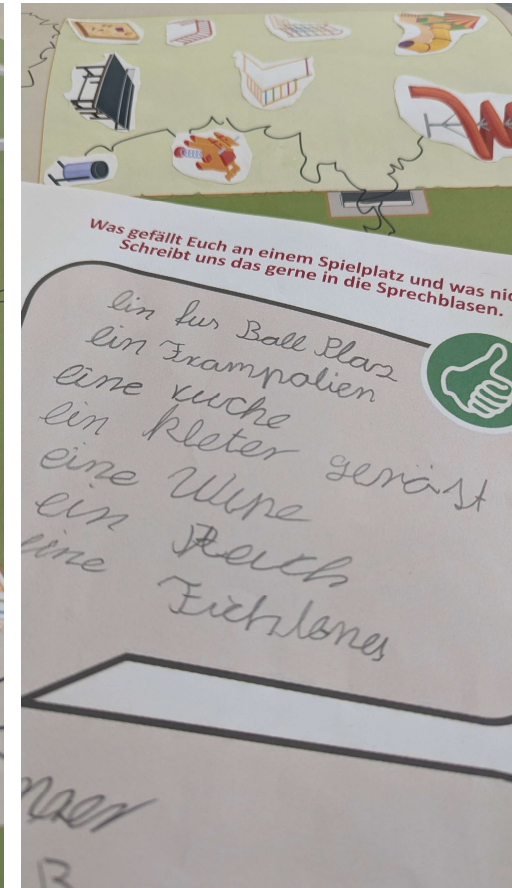 Was gefällt Euch an einem Spielplatz und was nic
Schreibt uns das gerne in die Sprechblasen.
ein fus Ball Plaz
ein Trampolien
eine kuche
ein kleter geräst
eine Wipe
ein
eine
B